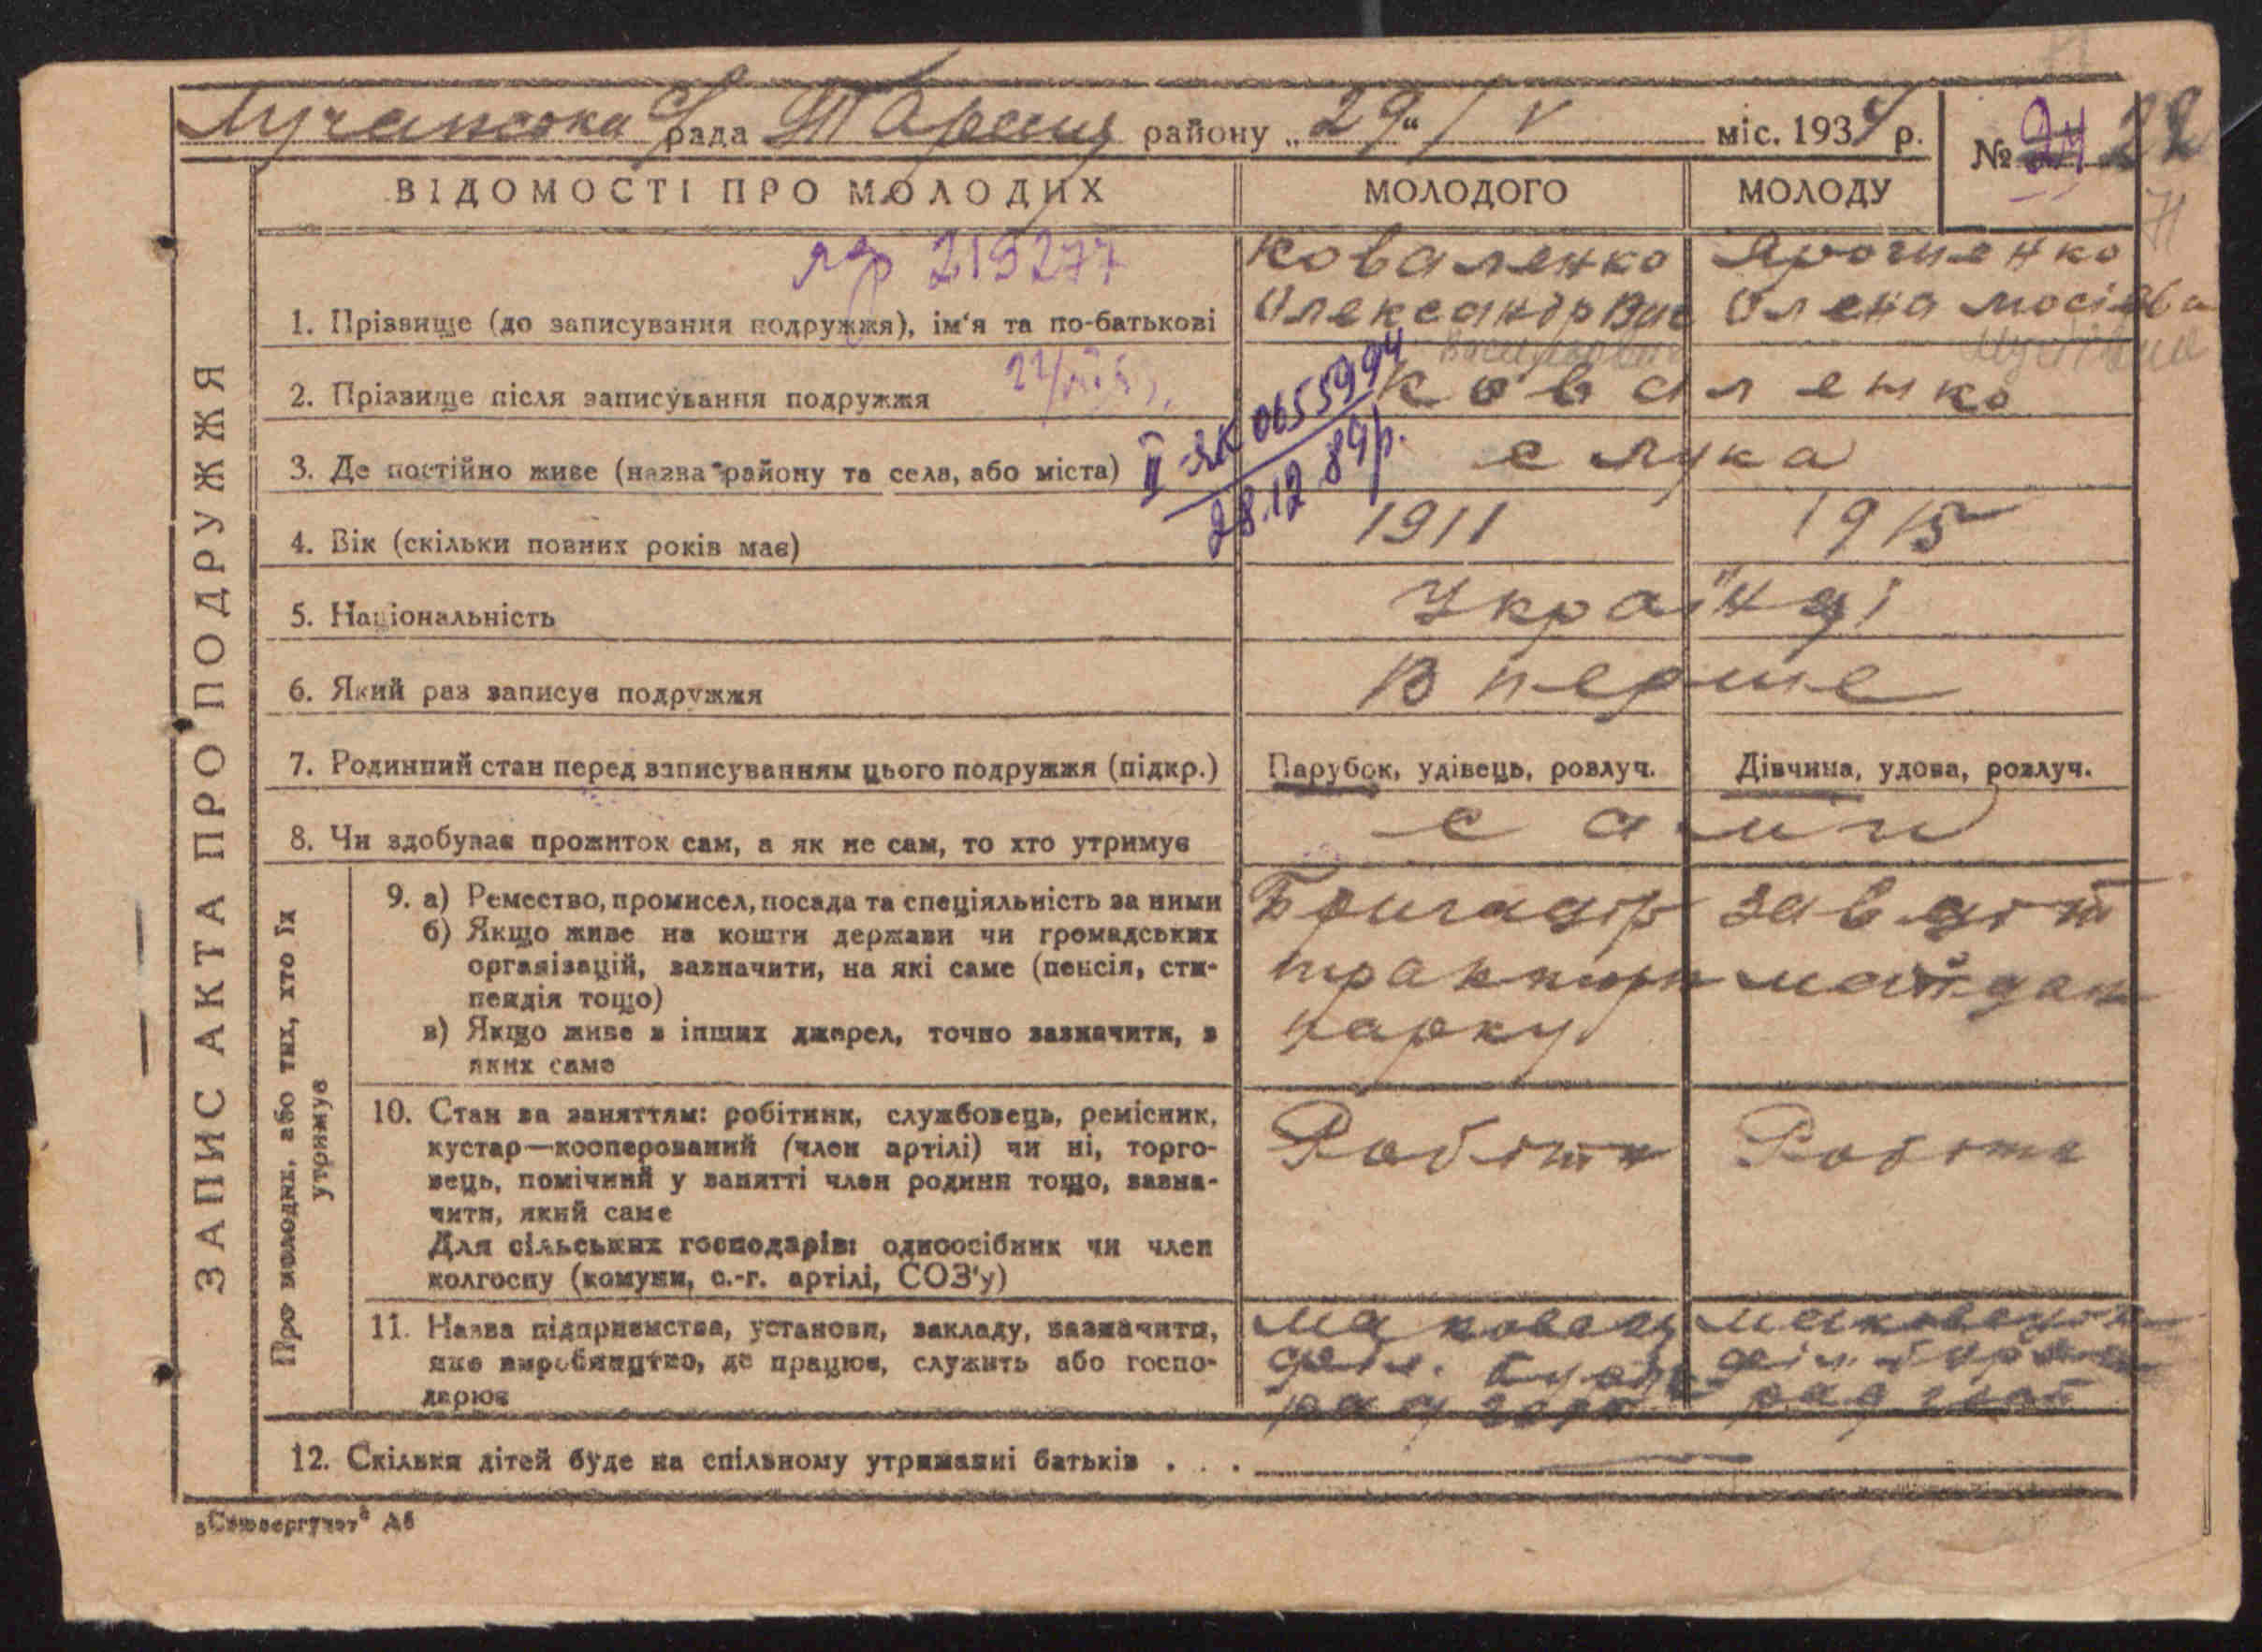 Лучанська с/рада Таращ району „29“ / V міс. 1934 р.
№ 24 22
ЗАПИС АКТА ПРО ПОДРУЖЖЯ
ВІДОМОСТІ ПРО МОЛОДИХ МОЛОДОГО МОЛОДУ
71
219277
Коваленко Ярошенко
1. Прізвище (до записування подружжя), ім‘я та по-батькові Олександр Вас Олена
Васильович
2. Прізвище після записування подружжя Коваленко
ІІ-ЯК 0655994
28.12.89р.
3. Де постійно живе (назва району та села, або міста) с Лука
4. Вік (скільки повних років має) 1911 1915
5. Національність Українці
6. Який раз записує подружжя Вперше
7. Родинний стан перед записуванням цього подружжя (підкр.) Парубок, удівець, розлуч. Дівчина, удова, розлуч.
8. Чи здобуває прожиток сам, а як не сам, то хто утримує сами
Про молодих, або тих, хто їх утримує
9. а) Ремество, промисел, посада та спеціяльність за ними
б) Якщо живе на кошти держави чи громадських
організацій, зазначити, на які саме (пенсія, сти-
пендія тощо)
в) Якщо живе з інших джерел, точно зазначити, з
яких саме
Бригадір
парку
зав діт
майдан
10. Стан за заняттям: робітник, службовець, ремісник,
кустар—кооперований (член артілі) чи ні, торго-
вець, помічний у занятті член родини тощо, зазна-
чити, який саме
Для сільських господарів: одноосібник чи член
колгоспу (комуни, с.-г. артілі, СОЗ'у)
Робітн Робітн
11. Назва підприємства, установи, закладу, зазначити,
яке виробництво, де працює, служить або госпо-
дарює
12. Скільки дітей буде на спільному утриманні батьків . . . —